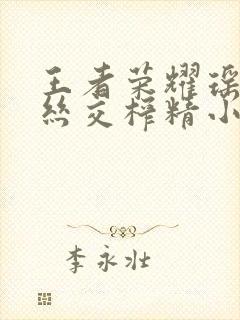 王者荣耀瑶
丝交榨精小
李永壮